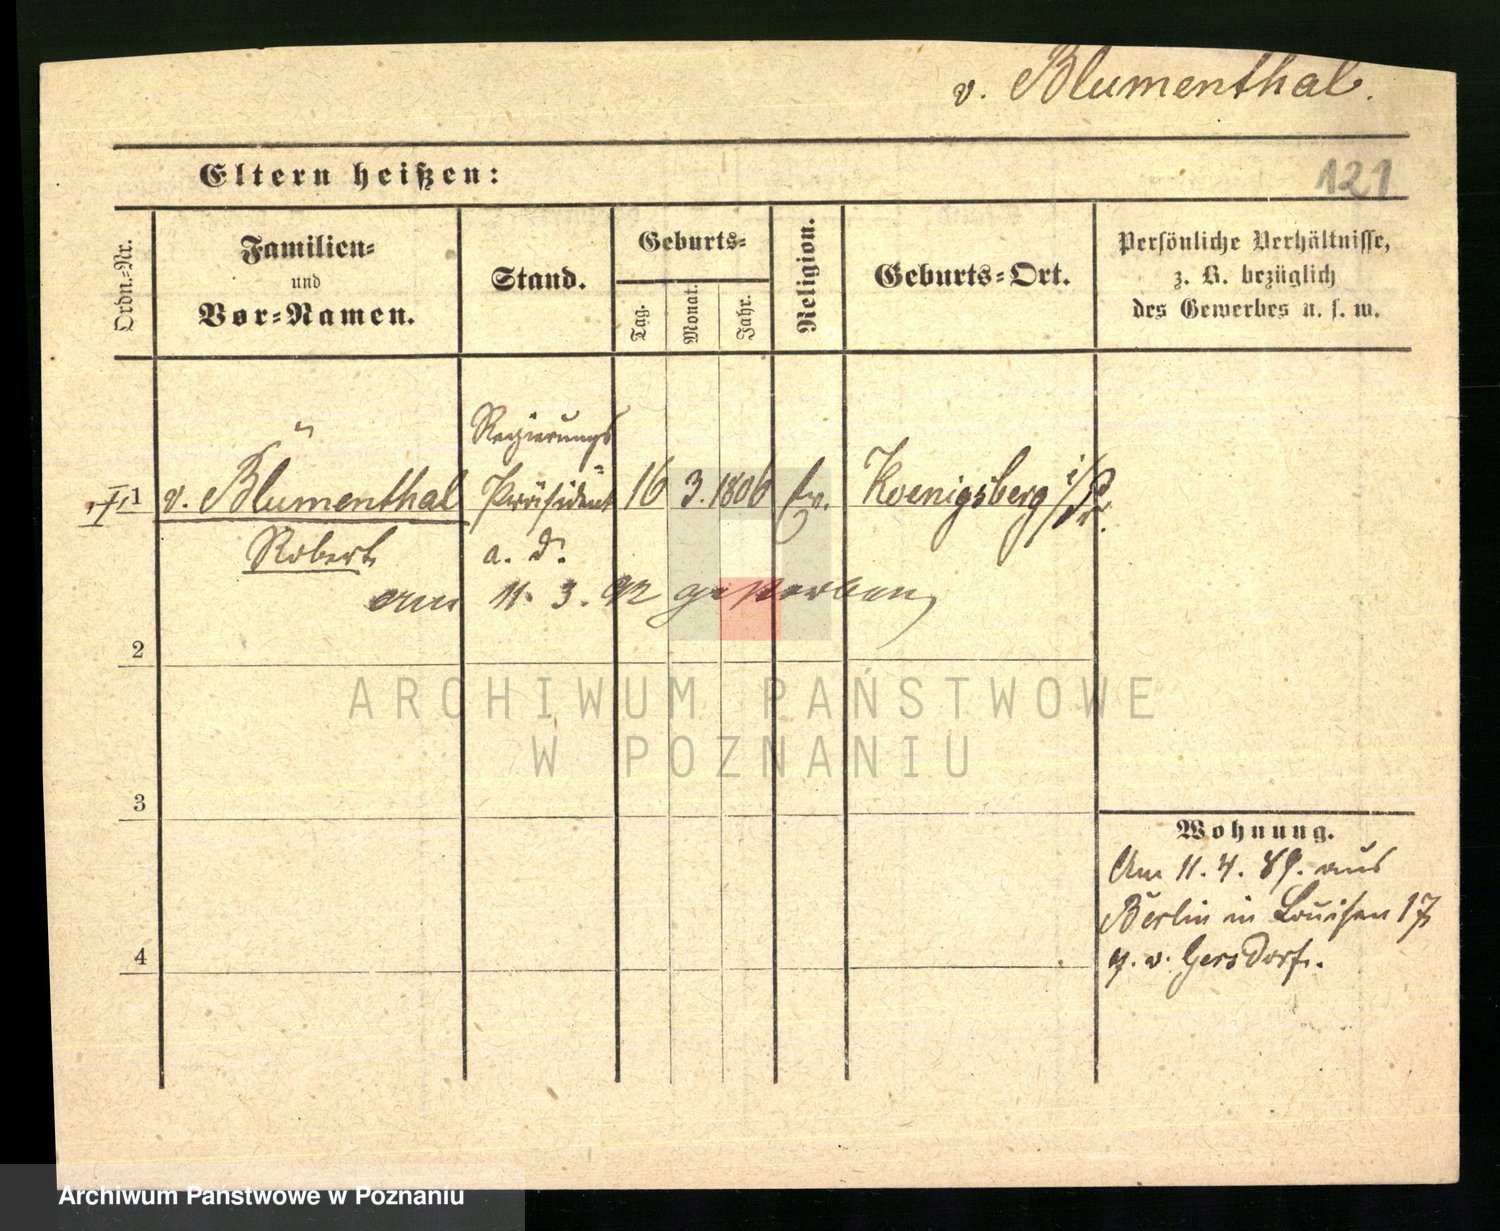 v. Blumenthal.
Eltern heißen:
121
Ordn.-Nr.
Familien-
und
Vor-Namen.
Stand.
Geburts-
Tag.
Monat.
Jahr.
Religion.
Geburts-Ort.
Persönliche Verhältnisse,
z. B. bezüglich
des Gewerbes u. s. w.
1
v. Blumenthal
Robert
Regierungs
Präsident
a. D.
16
3.
1806
ev.
Koenigsberg i/Pr.
am 11. 3. 92 gestorben
2
3
4
Wohnung.
Am 11. 4. 89. aus
Berlin in Louisen 17
v. Gersdorf.
ARCHIWUM PAŃSTWOWE
W POZNANIU
Archiwum Państwowe w Poznaniu